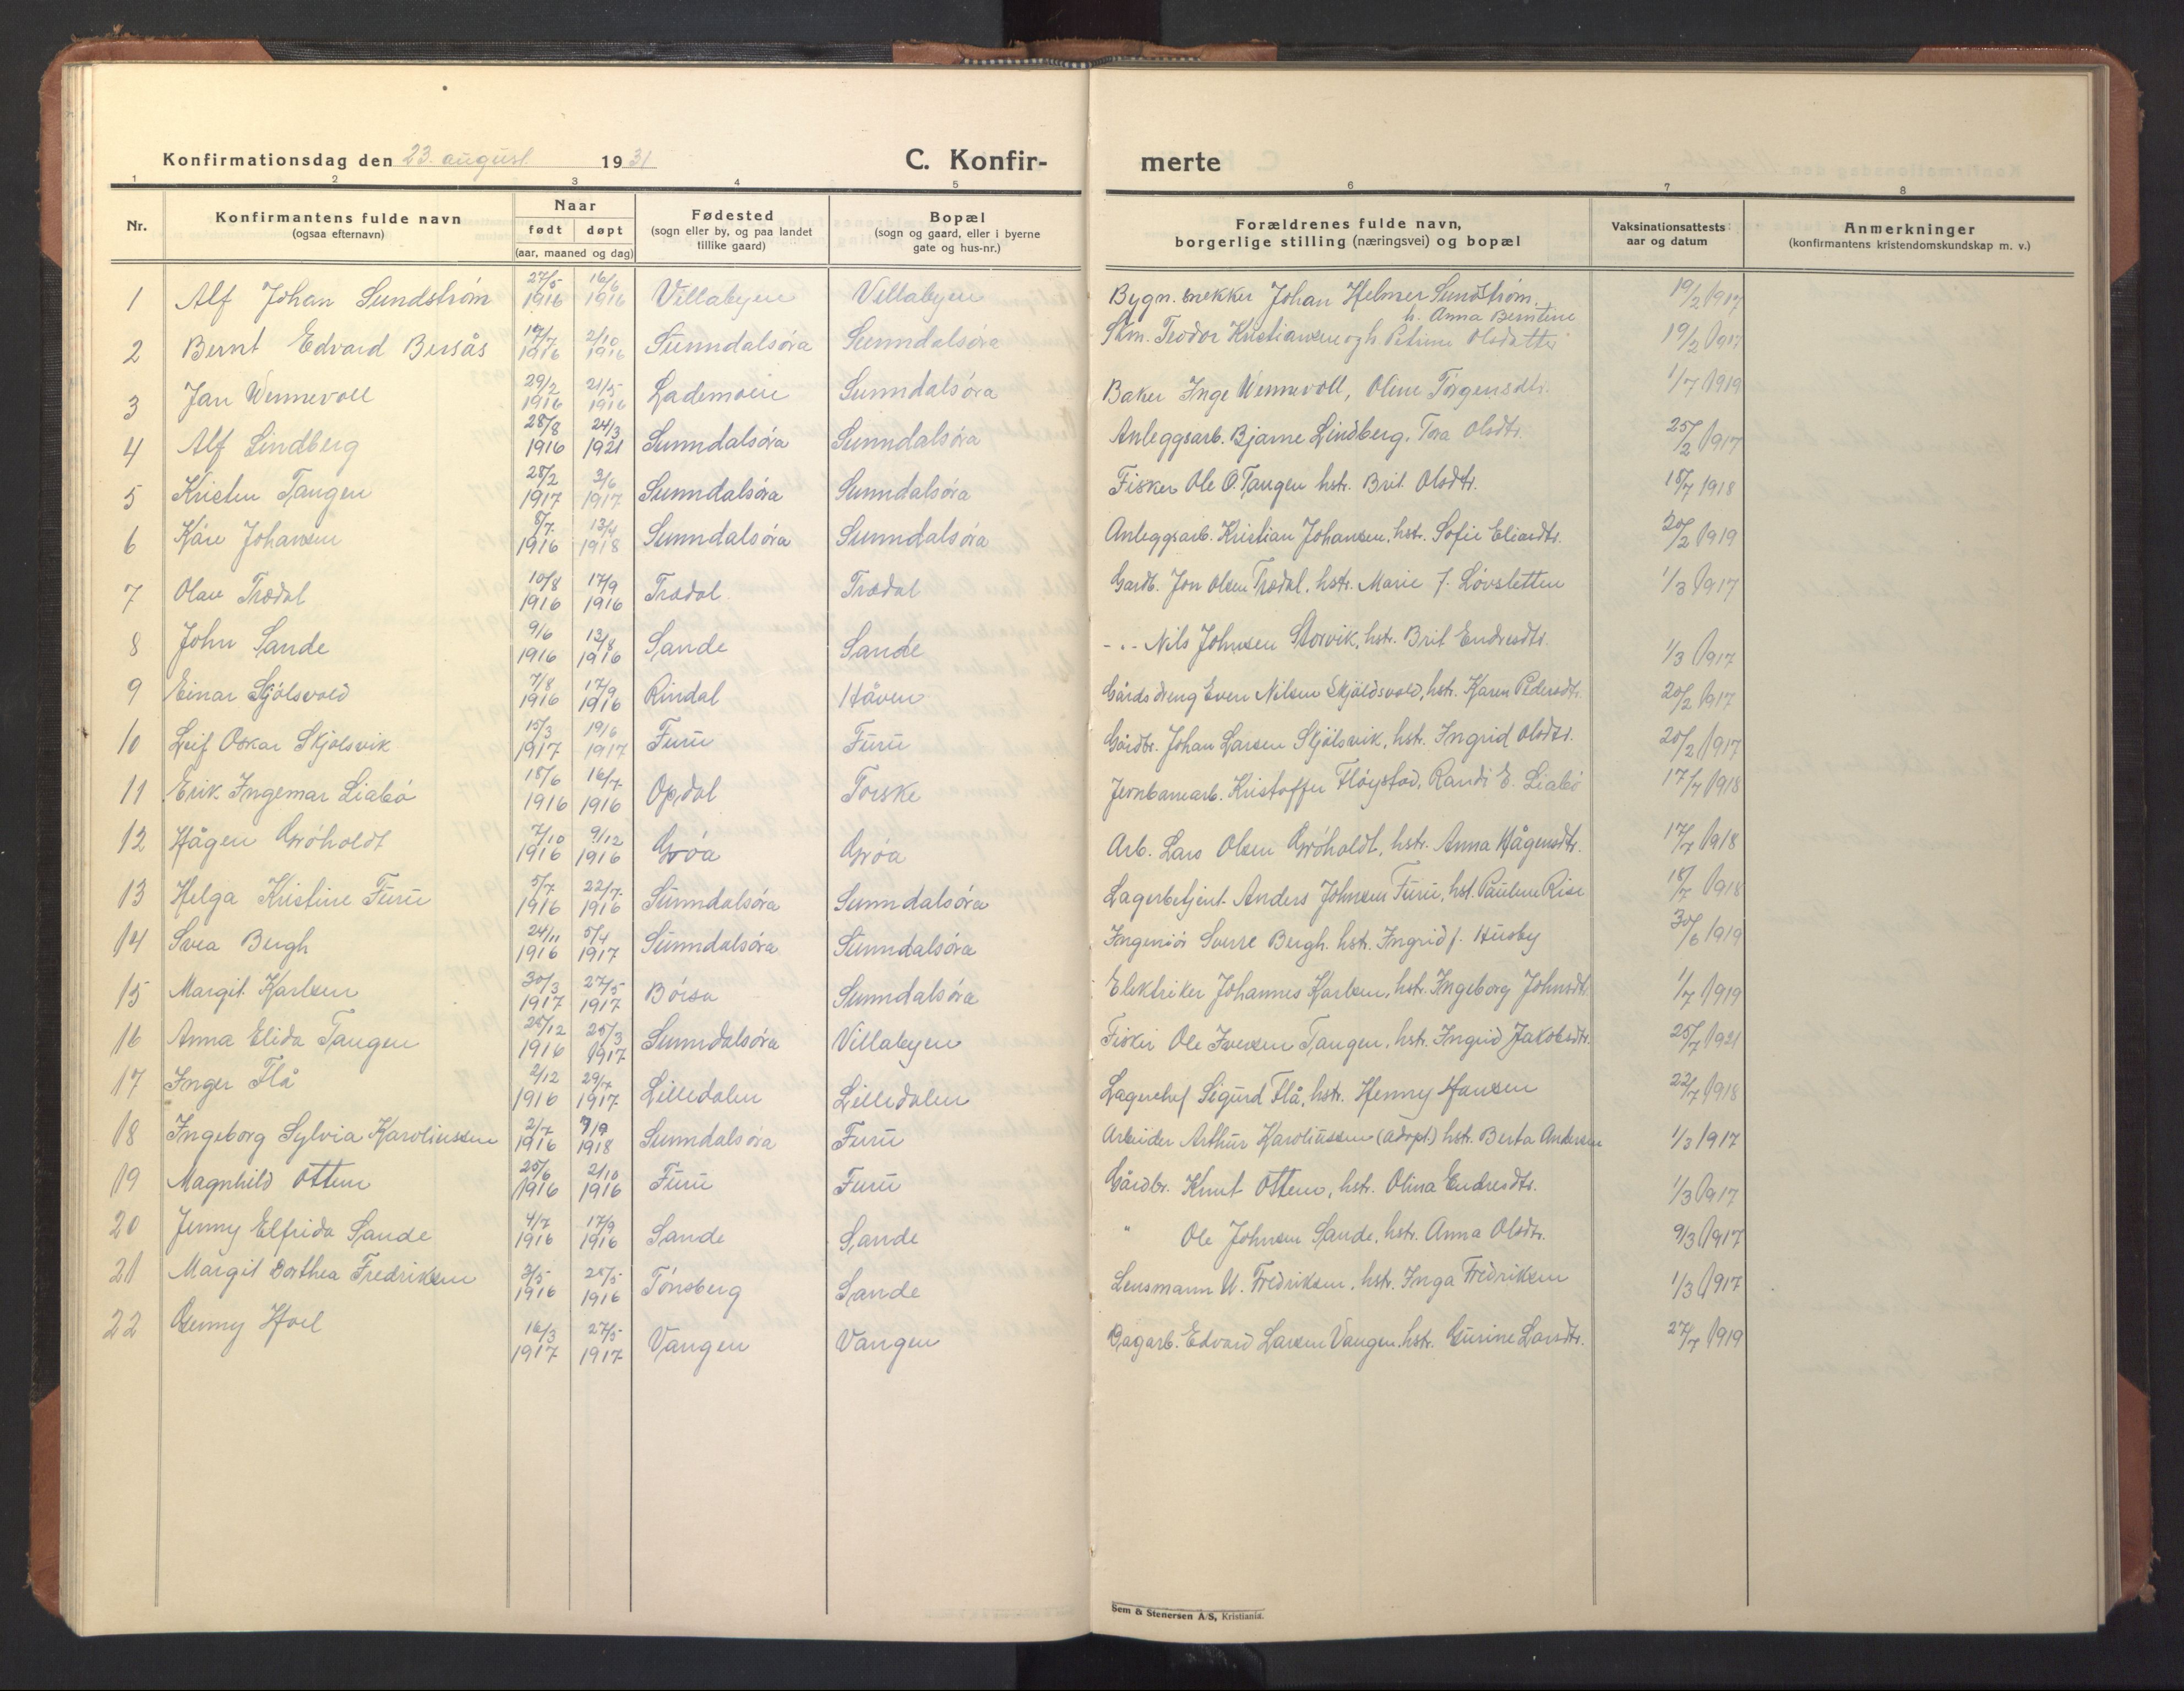 Konfirmationsdag den 23. august 1931 C. Konfir- merte
1 2 3 4 5 6 7 8
Nr. Konfirmantens fulde navn (ogsaa efternavn) Naar født døpt (aar, maaned og dag) Fødested (sogn eller by, og paa landet tillike gaard) Bopæl (sogn og gaard, eller i byerne gate og hus-nr.) Forældrenes fulde navn, borgerlige stilling (næringsvei) og bopæl Vaksinationsattests aar og datum Anmerkninger (konfirmantens kristendomskundskap m. v.)
1 Alf Johan Sundstrøm 27/5 1916 16/6 1916 Villabyen Villabyen Bygn. snekker Johan Helmer Sundstrøm, h. Anna Berntine 19/2 1917
2 Bernt Edvard Bersås 17/7 1916 2/10 1916 Sunndalsøra Sunndalsøra Teodor Kristiansen og h. Petrine Olsdatter 19/2 1917
3 Jan Wennevoll 29/2 1916 21/5 1916 Lademoen Sunndalsøra Baker Inge Wennevoll, Oline Torgersdtr. 1/7 1919
4 Alf Lindberg 28/8 1916 24/3 1921 Sunndalsøra Sunndalsøra Anleggsarb. Bjarne Lindberg. Tora Olsdtr. 25/2 1917
5 Kristen Tangen 28/2 1917 3/6 1917 Sunndalsøra Sunndalsøra Fisker Ole O. Tangen hstr. Brit Olsdtr. 18/7 1918
6 Kåre Johansen 8/7 1916 13/4 1918 Sunndalsøra Sunndalsøra Anleggsarb. Kristian Johansen, hstr. Sofie Eliasdtr. 20/2 1919
7 Olav Trædal 10/8 1916 17/9 1916 Trædal Trædal Gardb. Jon Olsen Trædal, hstr. Marie f. Løvsletten 1/3 1917
8 John Sande 9/6 1916 13/8 1916 Sande Sande - " - Nils Johnsen Storvik, hstr. Brit Endresdtr. 1/3 1917
9 Einar Skjølsvold 7/8 1916 17/9 1916 Rindal Håven Gårdsdreng Even Nilsen Skjøldsvold, hstr. Karen Pedersdtr. 20/2 1917
10 Leif Oskar Skjølsvik 15/3 1917 19/6 1917 Furu Furu Gårdbr. Johan Larsen Skjølsvik, hstr. Ingrid Olsdtr. 20/2 1917
11 Erik Ingemar Liabø 18/6 1916 16/7 1916 Opdal Torske Jernbanearb. Kristoffer Fløystad, Randi E. Liabø 17/7 1918
12 Hågen Grøholdt 7/10 1916 9/12 1916 Grøa Grøa Arb. Lars Olsen Grøholdt, hstr. Anna Hågensdtr. 17/7 1918
13 Helga Kristine Furu 5/7 1916 22/7 1916 Sunndalsøra Sunndalsøra Lagerbetjent Anders Johnsen Furu, hst. Pauline Rise 18/7 1918
14 Svea Bergh 24/11 1916 5/4 1917 Sunndalsøra Sunndalsøra Ingeniør Sverre Bergh. hstr. Ingrid f. Husby 30/6 1919
15 Margit Karlsen 30/3 1917 27/5 1917 Børsa Sunndalsøra Elektriker Johannes Karlsen, hstr. Ingeborg Johnsdt. 1/7 1919
16 Anna Elida Tangen 25/12 1916 25/3 1917 Sunndalsøra Villabyen Fisker Ole Iversen Tangen, hstr. Ingrid Jakobsdtr. 25/7 1921
17 Inger Flå 2/12 1916 29/7 1917 Lilledalen Lilledalen Lagerchef Sigurd Flå, hstr. Henny Hansen 22/7 1918
18 Ingeborg Sylvia Karoliussen 2/7 1916 7/9 1918 Sunndalsøra Furu Arbeider Arthur Karoliussen (adopt.) hstr. Berta Andersen 1/3 1917
19 Magnhild Ottem 25/6 1916 2/10 1916 Furu Furu Gårdbr. Knut Ottem, hstr. Olina Endresdtr. 1/3 1917
20 Jenny Elfrida Sande 4/7 1916 17/9 1916 Sande Sande " Ole Johnsen Sande, hstr. Anna Olsdtr. 9/3 1917
21 Margit Dorthea Fredriksen 3/5 1916 25/5 1916 Tønsberg Sande Lensmann U. Fredriksen, hstr. Inga Fredriksen 1/3 1917
22 Genny Hoel 16/3 1917 27/5 1917 Vangen Vangen Dagarb. Edvard Larsen Vangen, hstr. Gurine Larsdtr. 27/7 1919
Sem & Stenersen A/S, Kristiania.